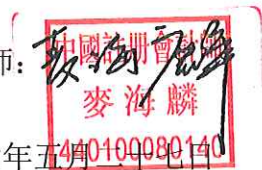 师：麥海麟
中國註册會計師
麥海麟
440100080140
年五月二十七日